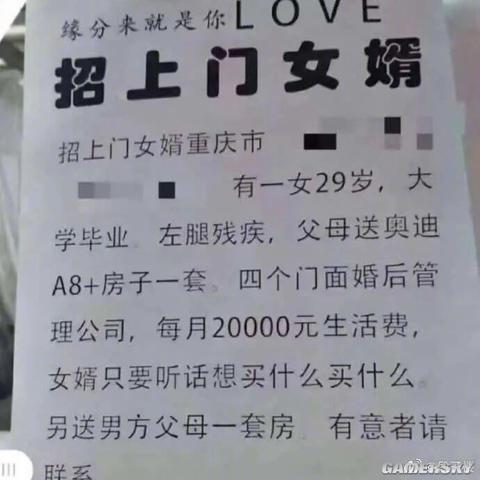 缘分来就是你LOVE
招上门女婿
招上门女婿重庆市
有一女29岁，大
学毕业 左腿残疾，父母送奥迪
A8+房子一套。四个门面婚后管
理公司，每月20000元生活费，
女婿只要听话想买什么买什么。
另送男方父母一套房 有意者请
联系
GAMERSKY